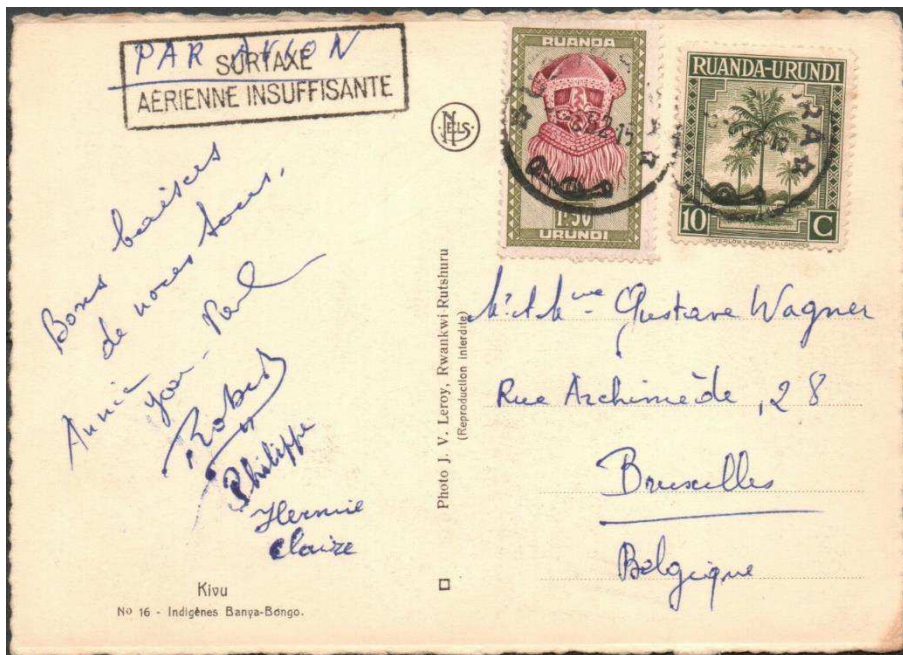 PAR AVION
SURTAXE
AÉRIENNE INSUFFISANTE
Bons baisers
de nous tous,
Annie
Robert
Philippe
Hermie
Claire
Kivu
No 16 - Indigènes Banya-Bongo.
NELS
Photo J. V. Leroy, Rwankwi Rutshuru
(Reproduction interdite)
RUANDA
1F50
URUNDI
RUANDA-URUNDI
10 C
WATERLOW & SONS LTD. LONDRES
Mr & Mme Gustave Wagner
Rue Archimède, 28
Bruxelles
Belgique